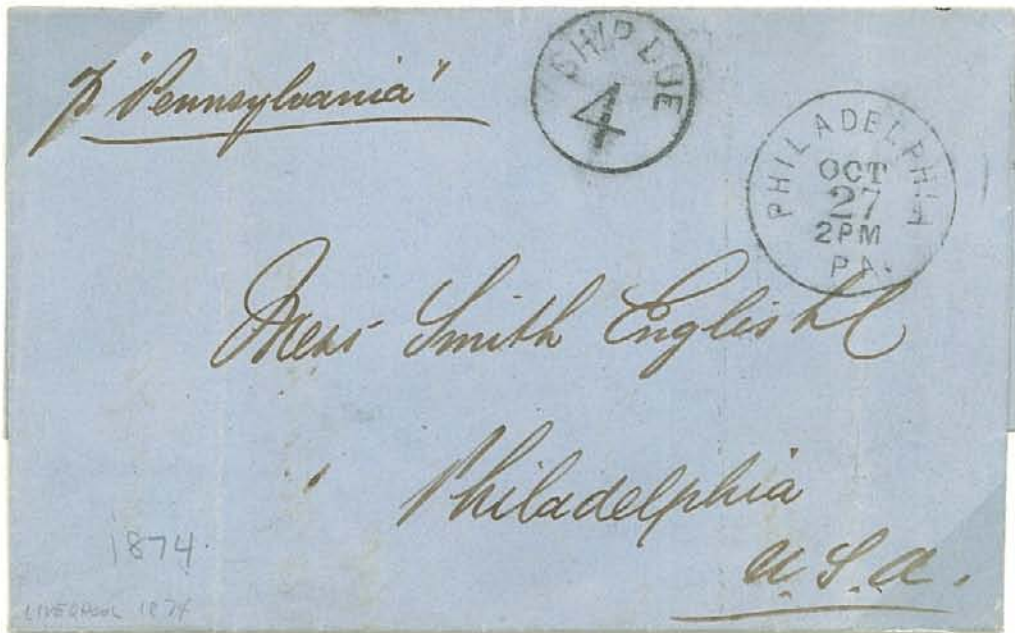 p "Pennsylvania"
SHIP DUE
4
PHILADELPHIA
OCT
27
2PM
PA.
Mess Smith English & C
Philadelphia
U.S.A.
1874.
LIVERPOOL 1874